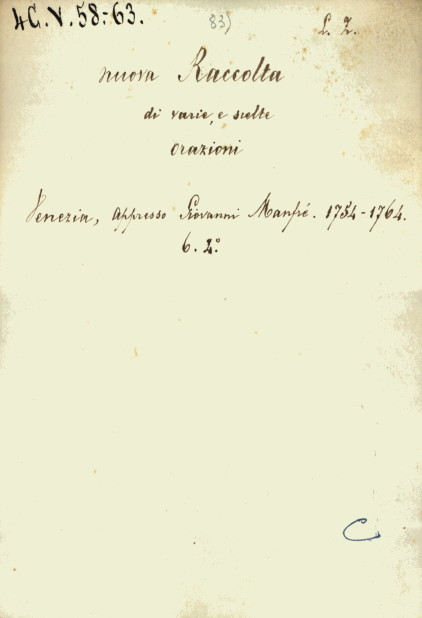 4C.V.58.-63. 83) L. 2.
nuova Raccolta
di varie, e scelte
orazioni
Venezia, appresso Giovanni Manfré. 1754-1764.
6. 2°
C